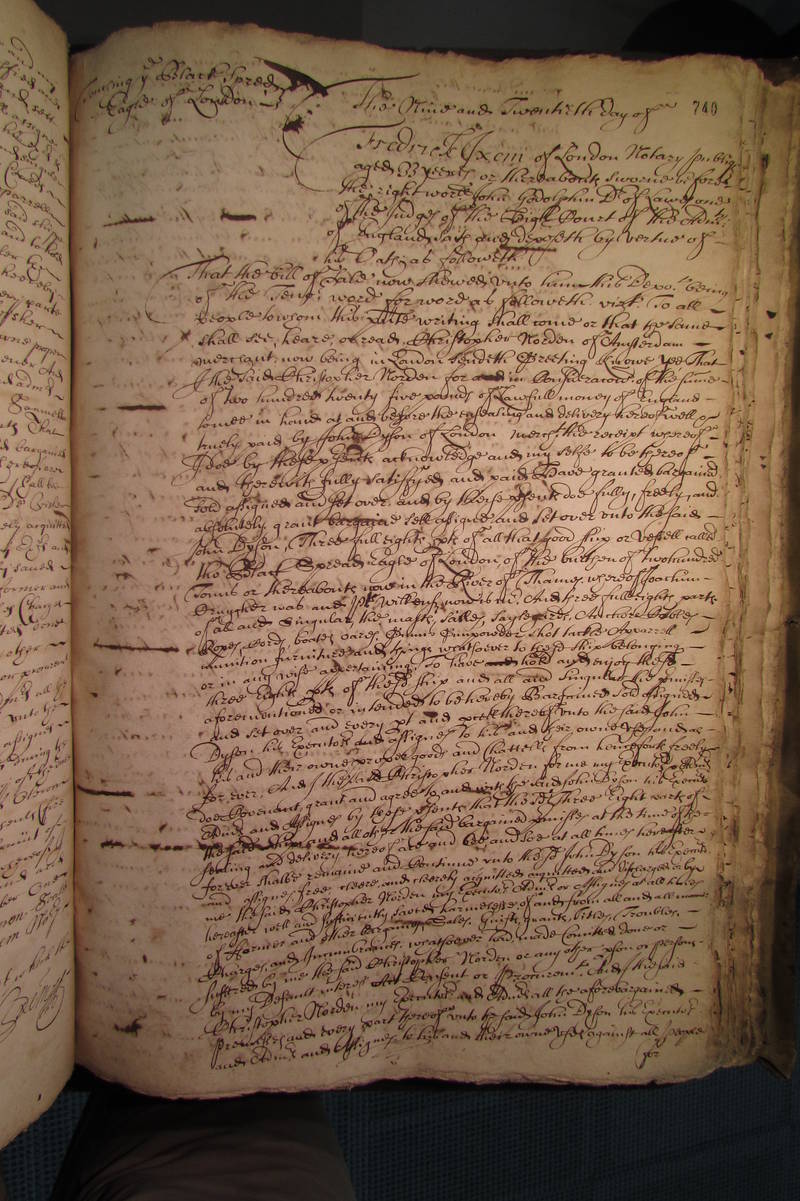 y:e Black Spread
Eagle of London
The Nine and Twentieth day of
740
Fredrick Ixem of London Notary publiq
aged 33 yeeres or thereabouts sworne before
the right wor:ll John Godolphin D:r of Lawes one
of the Judges of the High Court of the Adm:ty
of England, saith and deposeth by vertue of
his Oath as followeth
That the bill of Sale now shewed unto him this Depo:t being
of the Teno:r word for word as followeth viz:t To all
People to whom this p:sente writing shall come or that the same
shall see, heare, or read, Christopher Norden of Amsterdam
merchant now being in London sendeth Greeting Knowe yee That
I the said Christopher Norden for and in Consideracon of the summe
of two hundred twenty five pounds of Lawfull money of England
to mee in hand at and before the ensealing and delivery hereof well &
truely paid by John Dyson of London merch:t the receipt whereof
I doe by these p:sents acknowledge and my selfe to be thereof
and therewith fully satisfyed and paid Have granted bargained
sold assigned and set over and by these p:sents doe fully, freely, and
absolutely grant bargaine sell assigne and set over unto the said
John Dyson, Three full eighth p:ts of all that good ship or vessell called
the Black Spread Eagle of London, of the burthen of two hundred
tonns or thereabouts now in the River of Thames, whereof Joachim
was and now is m:r, And three full eight parts
of all and singular the masts, Sailes, Sayleyards, Anchors Cables
Ropes, Cords, boates, oares, Gunns Gunpowder, shot tackle Apparrell
munition furniture and things whatsoever to the s:d ship belonging
or in any wise appertaining, To have and hold and enjoy the s:d
three Eight p:ts of the s:d ship and all and singular the premisses
aforementioned or intended to be hereby Bargained Sold assigned
and set over and every p:t and parcell thereof unto the said John
Dyson his Executors and assignes to his and their owne use and uses as
his and their owne proper goods and Chattells from henceforth freely
for ever. And I the said Christopher Norden for me my Execut:rs and Adm:rs
doe Covenant grant and agree to and with the said John Dyson his Execut:rs
Adm:rs and Assignes by these p:sents that the s:d Three Eight parts of
the said ship and all other the said bargained premisses at the time of the
sealing and delivery hereof are and bee and soe at all times hereafter
forever shall remaine and Continue unto the s:d John Dyson his Execut:rs
and assignes free, cleere, and cleerely acquitted and discharged or by
me the said Christopher Norden my Execut:rs Adm:rs or Assignes at all times
hereafter well and sufficiently saved harmelesse of and from all and all manner
of former and other bargaines Sales, Guifts, grants, Titles, Troubles,
Charges, and Incumbrances, whatsoever had, made Comitted done or
suffred by me the said Christopher Norden or any other p:son or persons
by my Default interest Act Consent or procurem:t And I the said
Christopher Norden, my Executors and Adm:rs all the aforebargained
premisses and every part thereof unto the said John Dyson his Executors
and Adm:rs and Assignes to his and their owne uses against all people
for